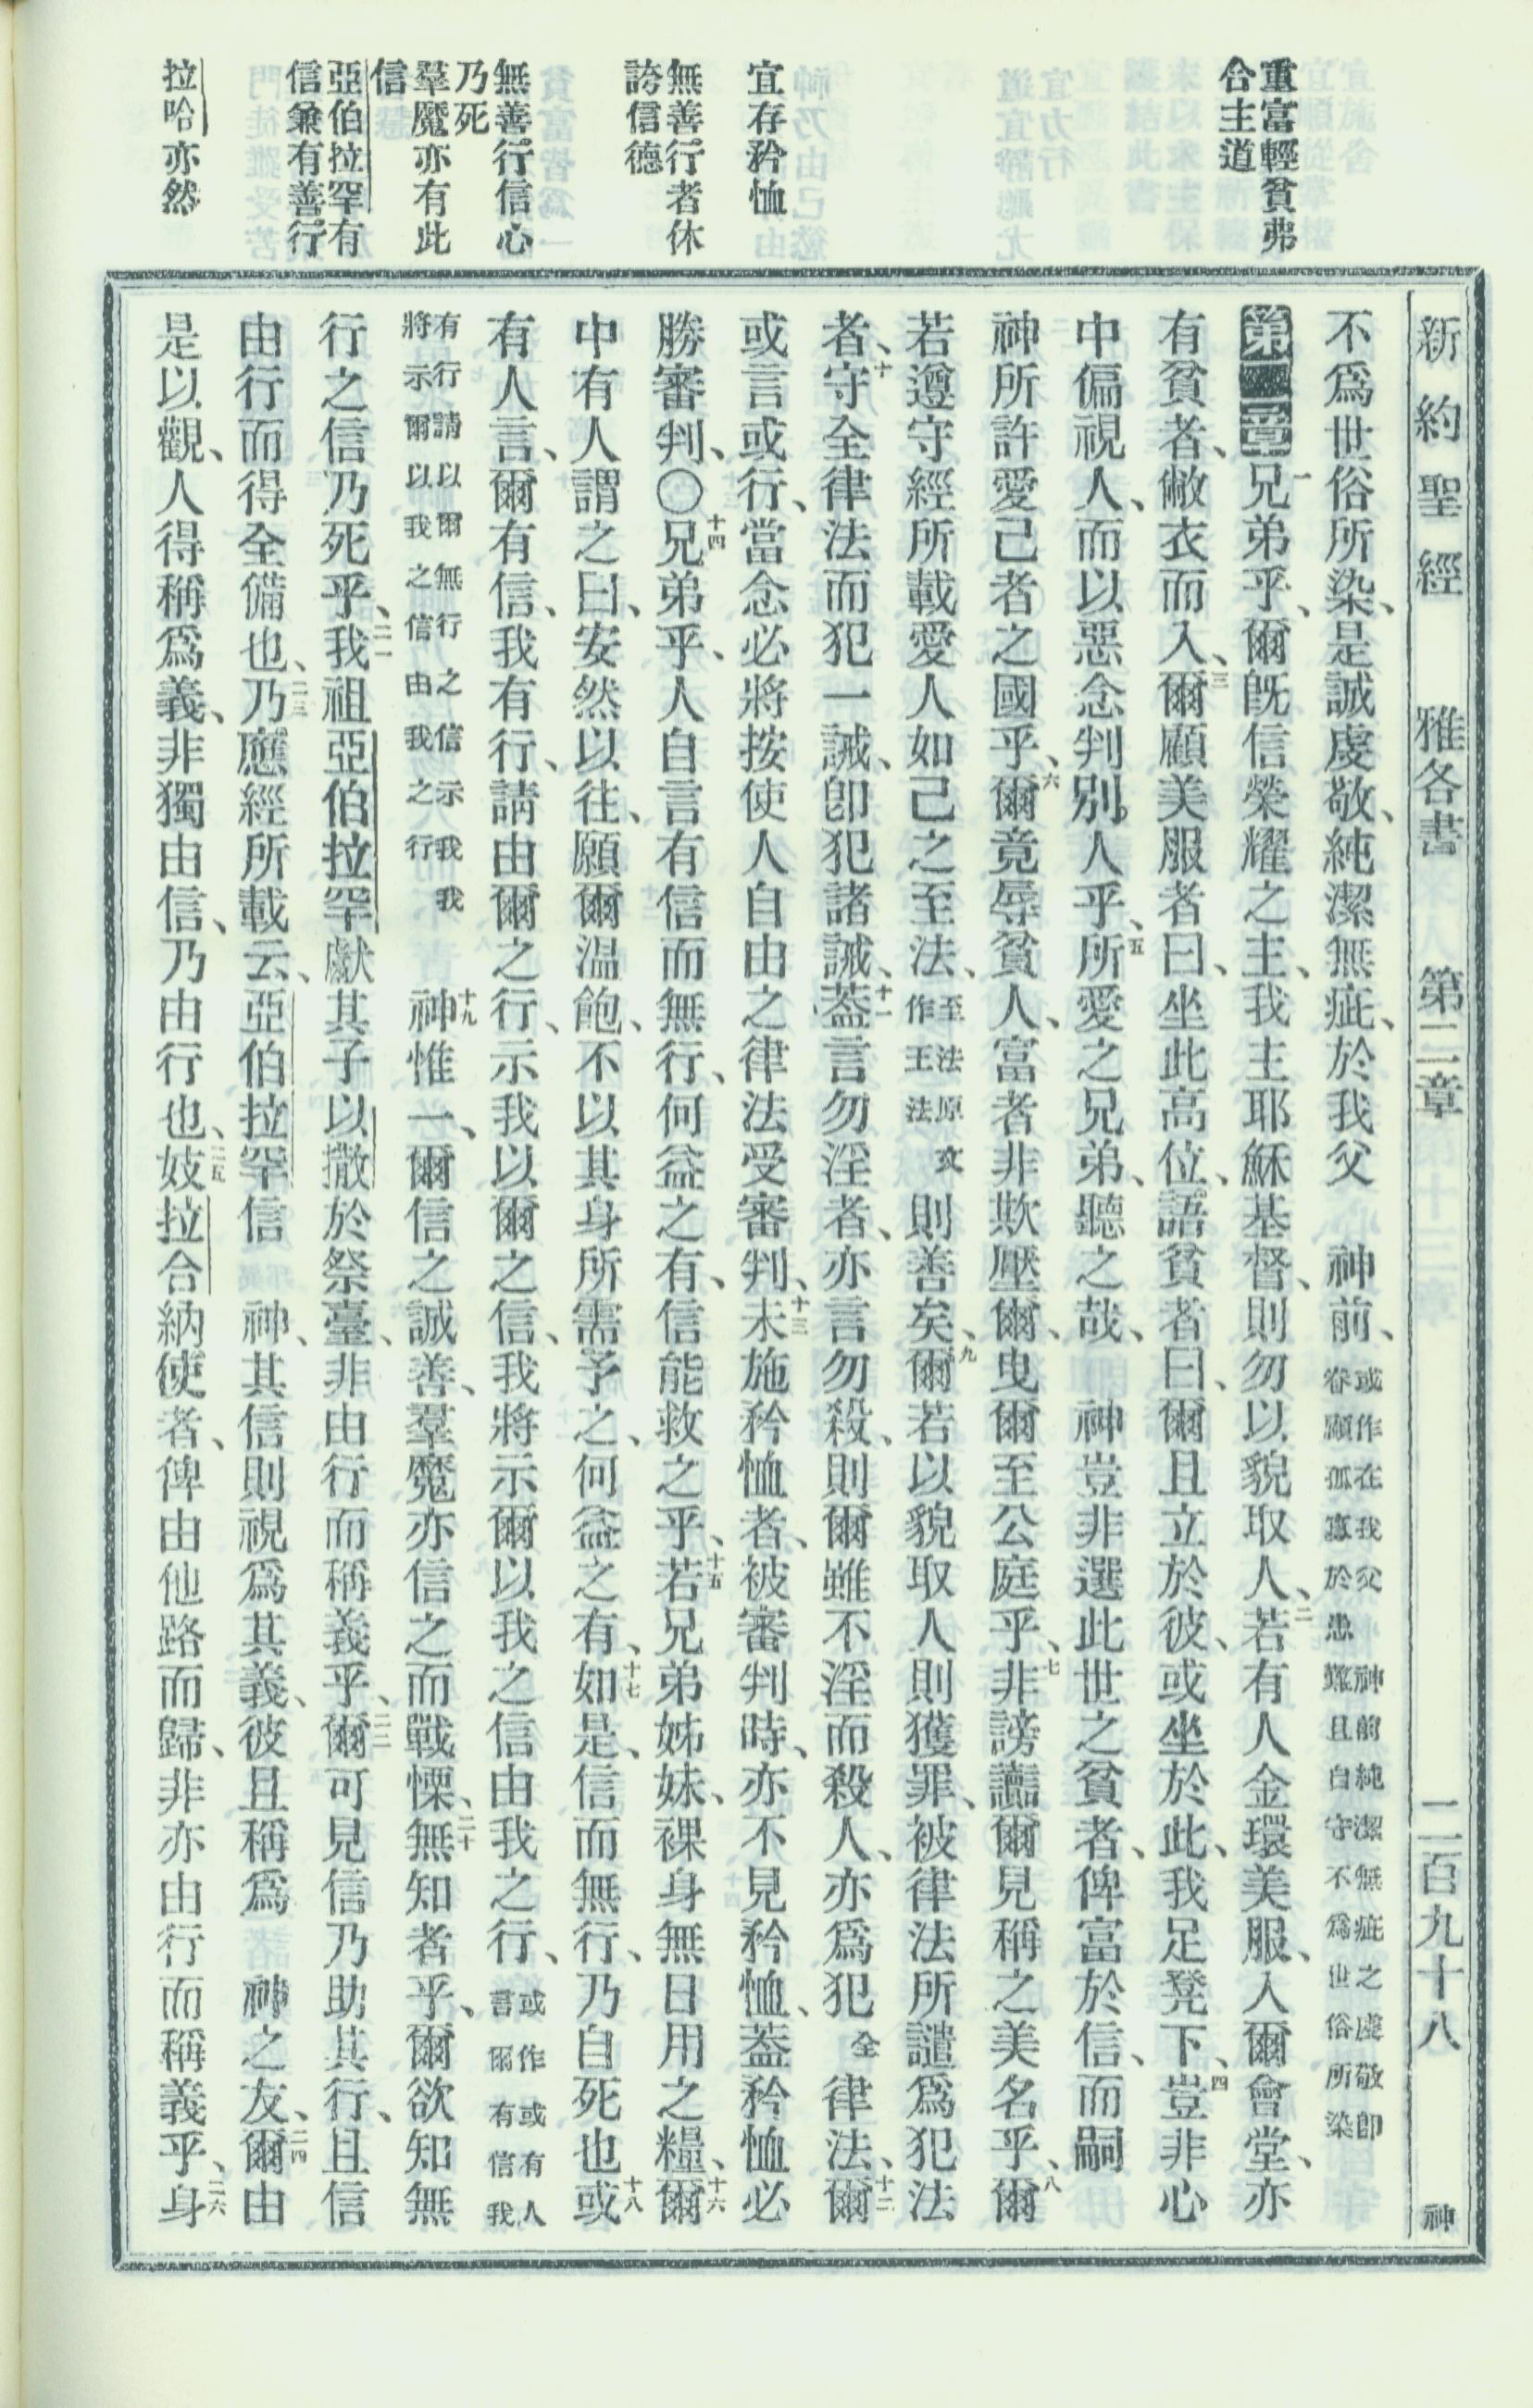 新約聖經 雅各書 第二章 二百九十八 神
重富輕貧弗
合主道
宜存矜恤
無善行者休
誇信德
無善行信心
乃死
羣魔亦有此
信
亞伯拉罕有
信兼有善行
拉哈亦然
不爲世俗所染、是誠虔敬、純潔無疵、於我父 神前、或作在我父 神前純潔無疵之虔敬卽眷顧孤寡於患難且自守不爲世俗所染
第二章 一兄弟乎、爾旣信榮耀之主、我主耶穌基督、則勿以貌取人、二若有人金環美服、入爾會堂、亦
有貧者、敝衣而入、三爾顧美服者曰、坐此高位、語貧者曰、爾且立於彼、或坐於此、我足凳下、四豈非心
中偏視人、而以惡念判別人乎、五所愛之兄弟、聽之哉、 神豈非選此世之貧者、俾富於信、而嗣
神所許愛己者之國乎、六爾竟辱貧人、富者非欺壓爾、曳爾至公庭乎、七非謗讟爾見稱之美名乎、八爾
若遵守經所載愛人如己之至法、至法原文作王法則善矣、九爾若以貌取人則獲罪、被律法所譴爲犯法
者、十守全律法而犯一誡、卽犯諸誡、十一蓋言勿淫者、亦言勿殺、則爾雖不淫而殺人、亦爲犯全律法、十二爾
或言或行、當念必將按使人自由之律法受審判、十三未施矜恤者、被審判時、亦不見矜恤、蓋矜恤必
勝審判、〇十四兄弟乎、人自言有信而無行、何益之有、信能救之乎、十五若兄弟姊妹、裸身無日用之糧、十六爾
中有人謂之曰、安然以往、願爾溫飽、不以其身所需予之、何益之有、十七如是、信而無行、乃自死也、十八或
有人言、爾有信、我有行、請由爾之行、示我以爾之信、我將示爾以我之信由我之行、或作或有人言爾有信我
有行請以爾無行之信示我我將示爾以我之信由我之行十九神惟一、爾信之誠善、羣魔亦信之而戰慄、二十無知者乎、爾欲知無
行之信乃死乎、二一我祖亞伯拉罕獻其子以撒於祭臺、非由行而稱義乎、二二爾可見信乃助其行、且信
由行而得全備也、二三乃應經所載云、亞伯拉罕信 神、其信則視爲其義、彼且稱爲 神之友、二四爾由
是以觀、人得稱爲義、非獨由信、乃由行也、二五妓拉合納使者、俾由他路而歸、非亦由行而稱義乎、二六身